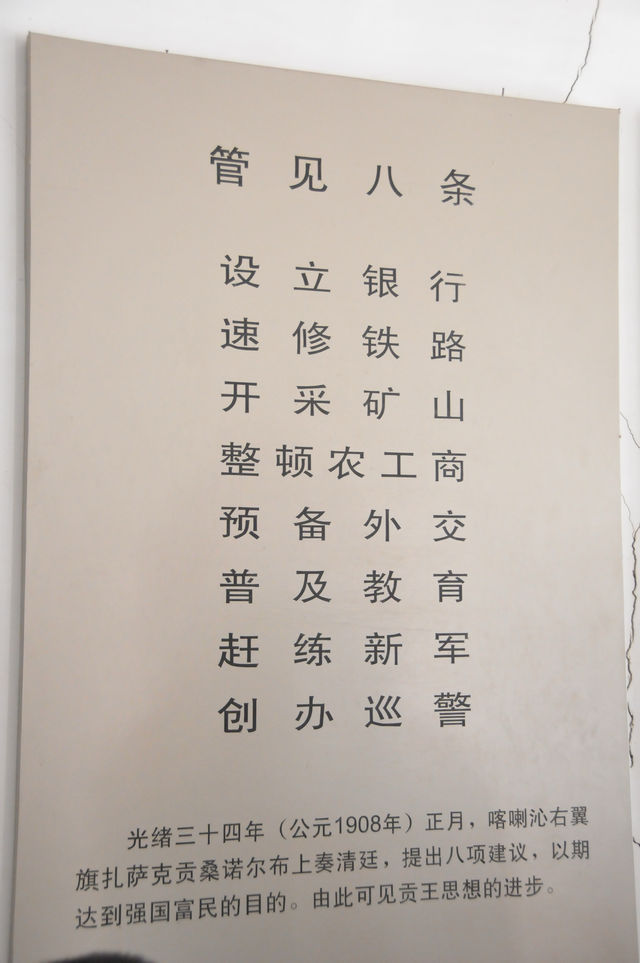 管见八条
设立银行
速修铁路
开采矿山
整顿农工商
预备外交
普及教育
赶练新军
创办巡警
光绪三十四年（公元1908年）正月，喀喇沁右翼
旗扎萨克贡桑诺尔布上奏清廷，提出八项建议，以期
达到强国富民的目的。由此可见贡王思想的进步。